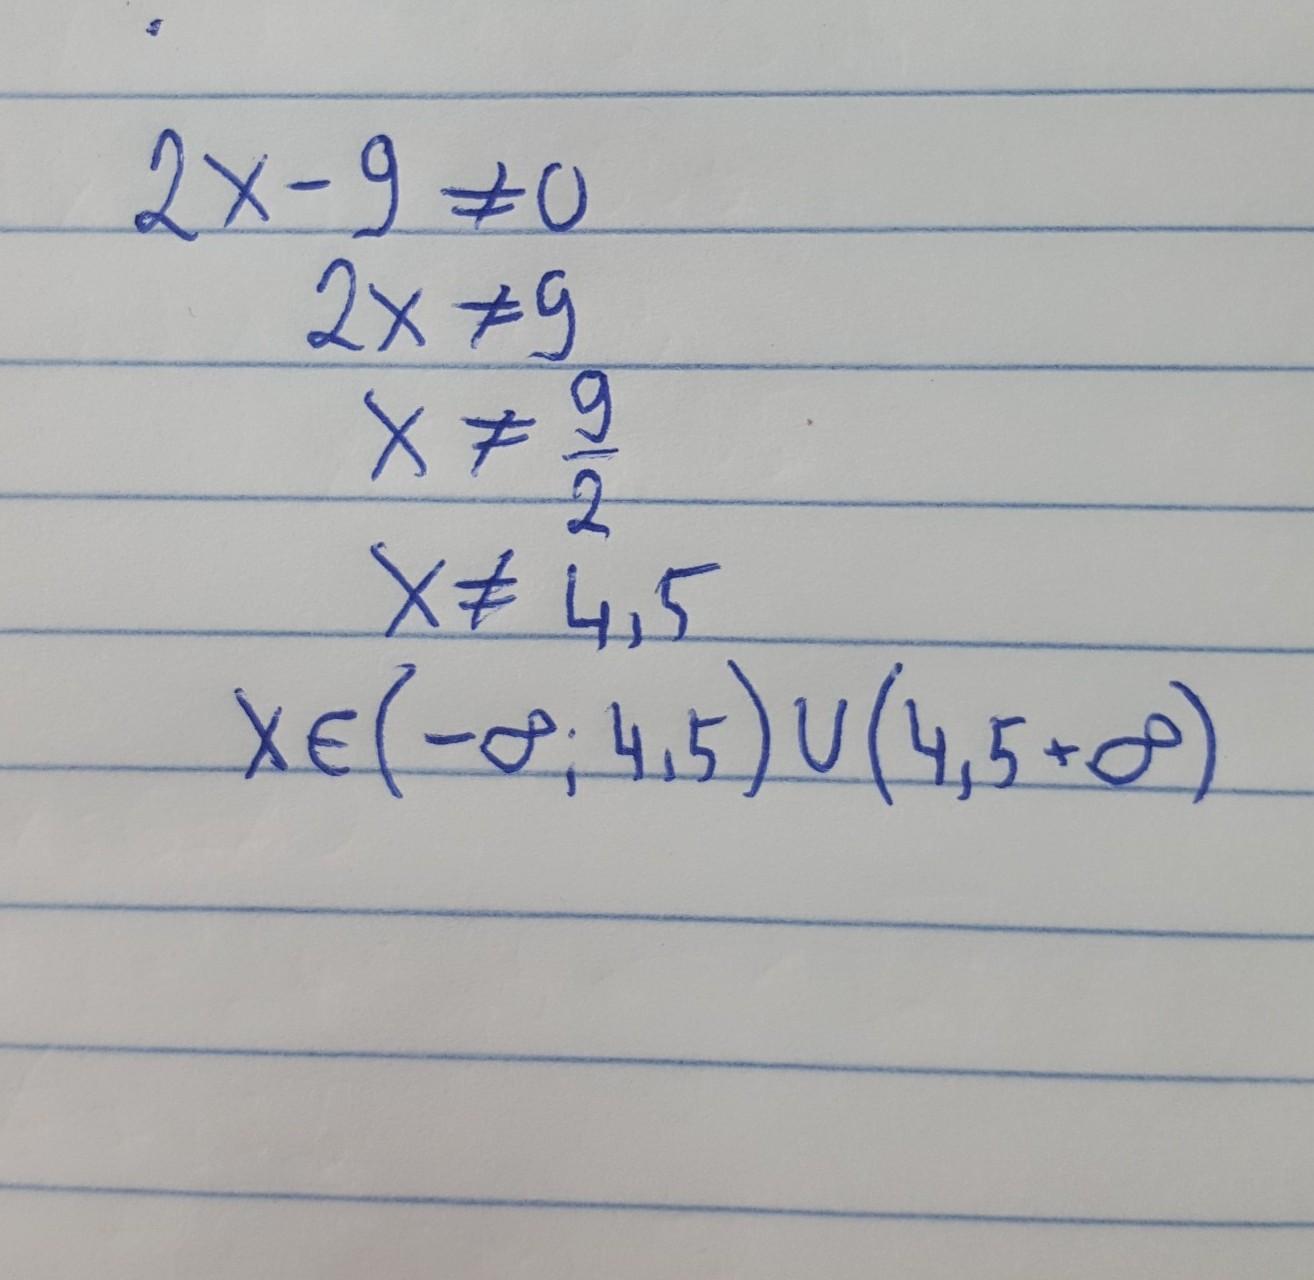 2x-9≠0
2x≠9
x≠9/2
x≠4,5
x∈(-∞;4,5)∪(4,5+∞)